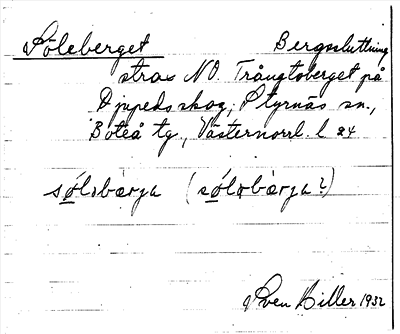 Söleberget Bergssluttning
strax NO Trångtoberget på
Djupeds skog, Styrnäs sn.,
Boteå tg., Västernorrl. l 24
sólobärja (sólobärja?)
Sven Hiller 1932